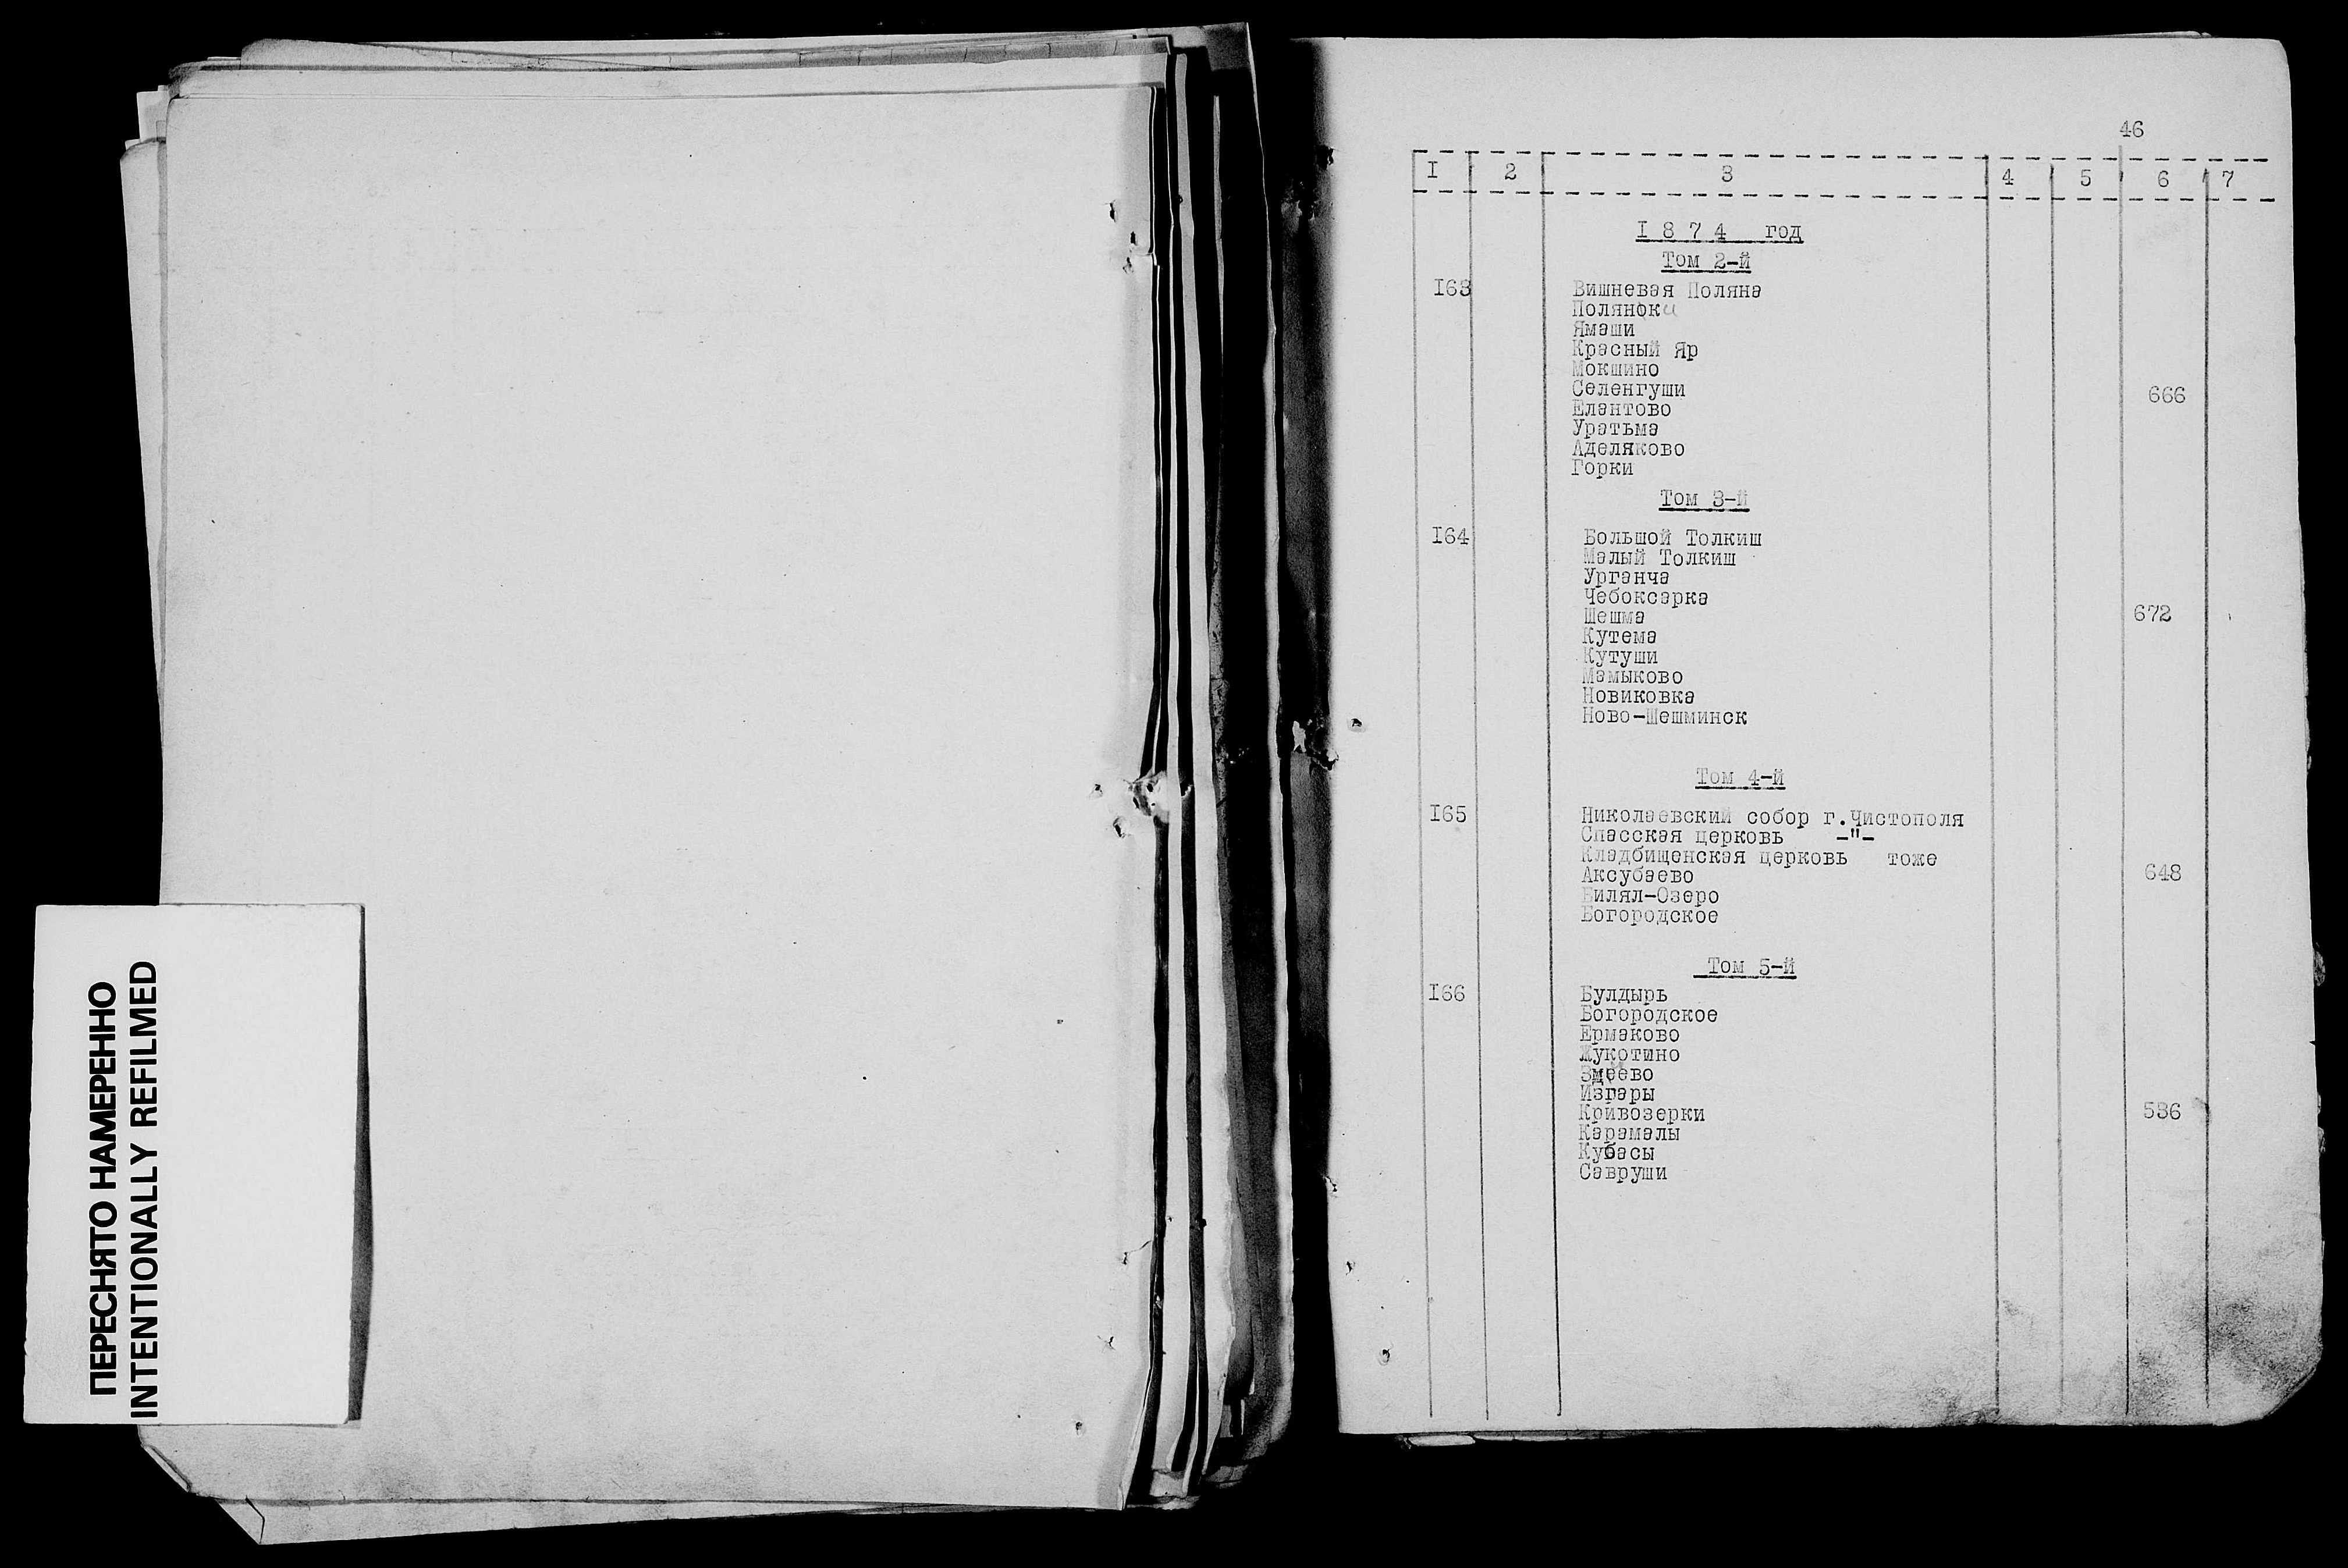 ПЕРЕСНЯТО НАМЕРЕННО
INTENTIONALLY REFILMED
46
I 2 3 4 5 6 7
I 8 7 4 год
Том 2-й
I63 Вишневая Поляна
Полянки
Ямаши
Красный Яр
Мокшино
Селенгуши 666
Елантово
Уратьма
Аделяково
Горки
Том 3-й
I64 Большой Толкиш
Малый Толкиш
Урганча
Чебоксарка
Шешма 672
Кутема
Кутуши
Мамыково
Новиковка
Ново-Шешминск
Том 4-й
I65 Николаевский собор г.Чистополя
Спасская церковь -"-
Кладбищенская церковь тоже
Аксубаево 648
Билял-Озеро
Богородское
Том 5-й
I66 Булдырь
Богородское
Ермаково
Жукотино
Змеево
Изгары
Кривозерки 536
Карамалы
Кубасы
Савруши